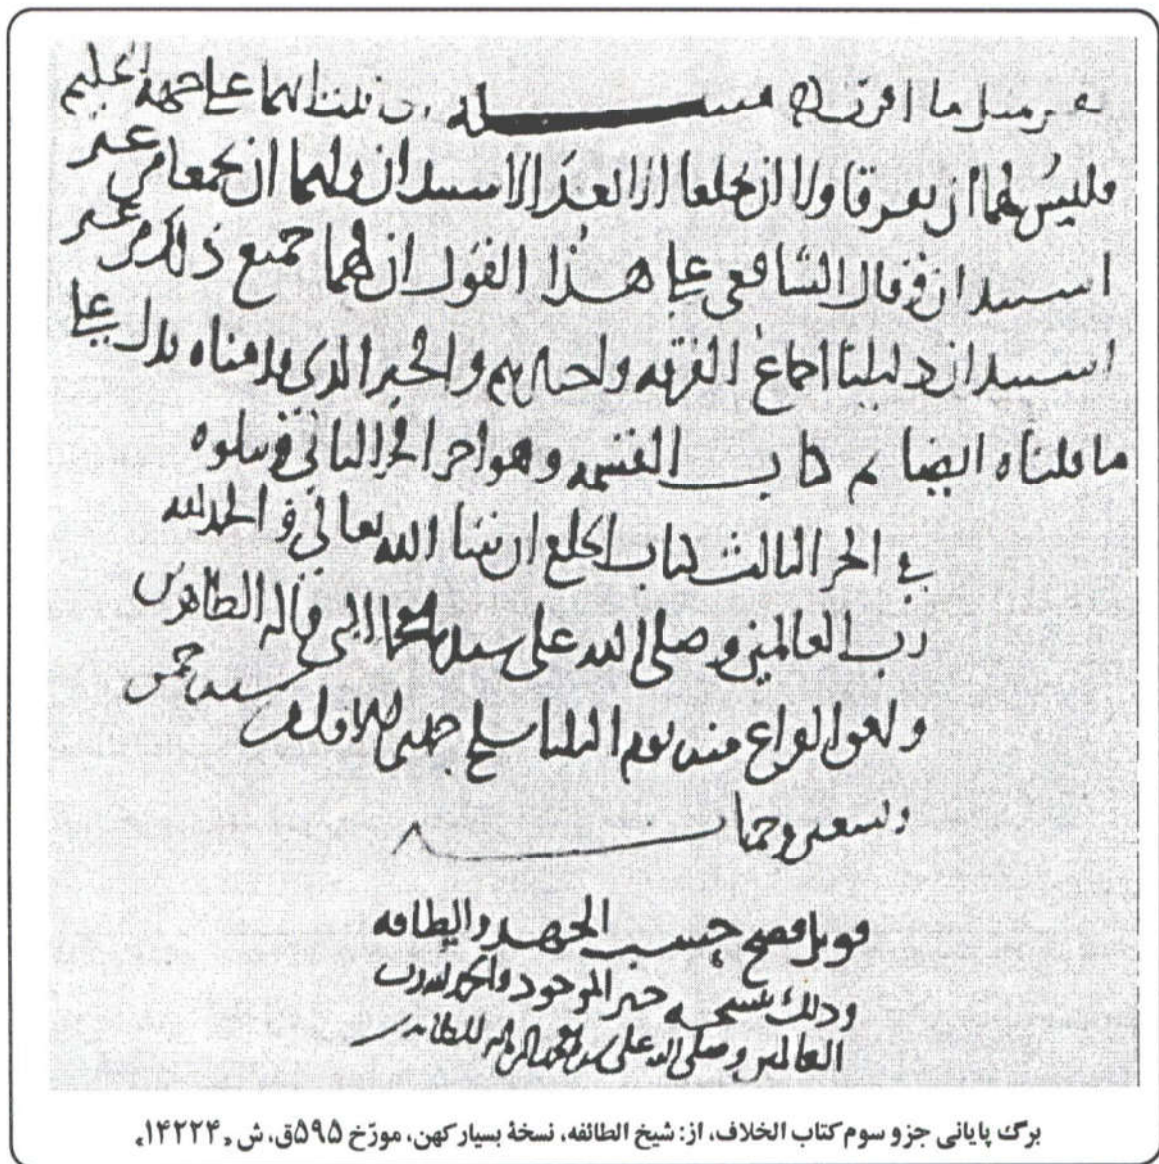 مسـلة ان قلنا انهما على جهة التحكيم
فليس لهما ان يفرقا ولا ان يخلعا الا بعد الاستيذان ولهما ان يجمعا من غير
استيذان وقال الشافعي على هذا القول ان لهما جميع ذلك من غير
استيذان دليلنا اجماع الفرقة واخبارهم والخبر الذي قدمناه يدل على
ما قلناه ايضا تم كتاب القسمة وهو اخر الجزء الثاني ويتلوه
في الجز الثالث كتاب الخلع ان شا الله تعالى و الحمد لله
رب العالمين وصلى الله على سيدنا محمد النبي واله الطاهرين
و الفراغ منه يوم الثلثا سلخ جمدى الاولى سنة خمس
وتسعين وخمسمائة
قوبل فصح حسب الجهد والطاقة
وذلك بنسخة حسب الموجود والحمد لله رب
العالمين وصلى الله على سيدنا محمد واله الطاهرين
برگ پایانی جزو سوم کتاب الخلاف، از: شیخ الطائفه، نسخهٔ بسیار کهن، مورّخ ۵۹۵ق، ش «۱۴۲۲۴»